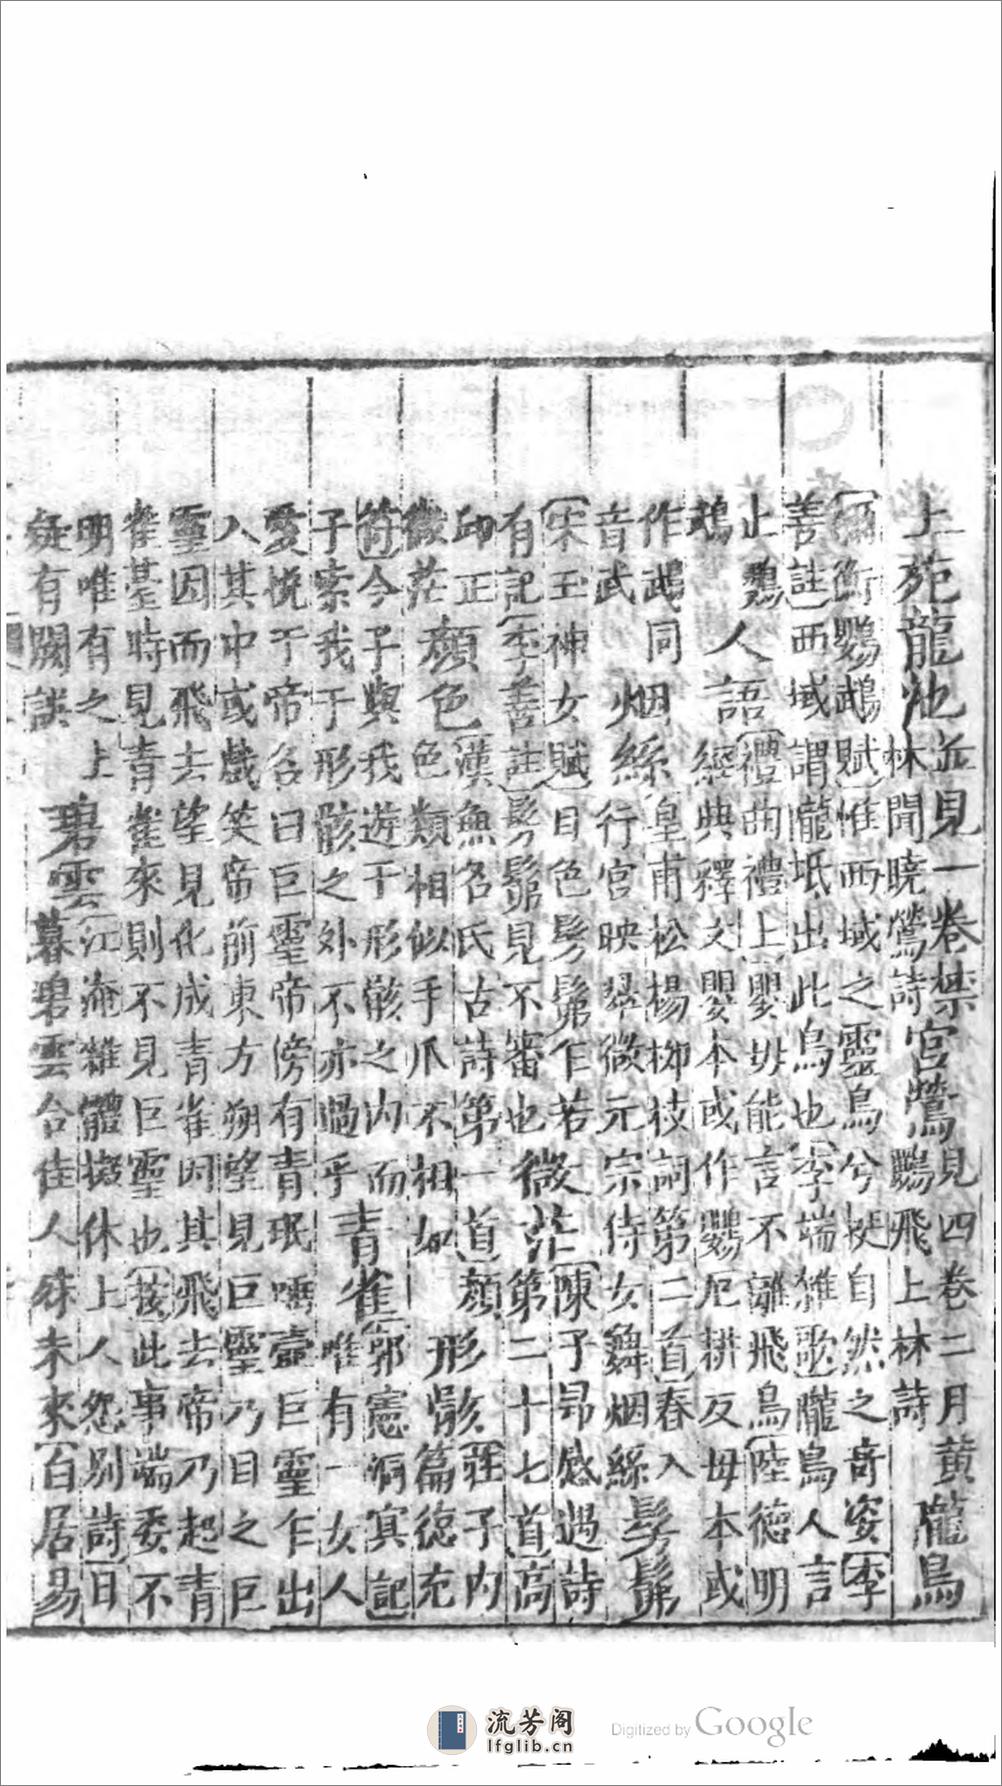 上苑龍池並見一卷禁
林聞曉鶯詩宮鶯見四卷二月黃
鸝飛上林詩隴鳥
〔禰衡鸚鵡賦〕惟西域之靈鳥兮挺自然之奇姿〔李
善註〕西域謂隴坻出此鳥也〔李端雜歌〕隴鳥人言
止鸚
鵡人語〔禮曲禮上〕嬰母能言不離飛鳥〔陸德明
經典釋文嬰本或作鸚厄耕反母本或
作鵡同
音武烟絲皇甫松楊柳枝詞第二首〕春入
行宮映翠微元宗侍女舞烟絲髣髴
〔宋玉神女賦〕目色髣髴乍若
有記〔李善註〕髣髴見不審也微茫〔陳子昂感遇詩
第二十七首〕高
邱正
微茫顏色〔漢魚名氏古詩第一首〕顏
色類相似手爪不相如形骸〔莊子內
篇德充
符〕今子與我遊于形骸之內而
子索我于形骸之外不亦過乎青雀〔郭憲洞冥記〕
唯有一女人
愛悅于帝名曰巨靈帝傍有青珉唾壺巨靈乍出
入其中或戲笑帝前東方朔望見巨靈乃目之巨
靈因而飛去望見化成青雀因其飛去帝乃起青
雀臺時見青雀來則不見巨靈也〔按〕此事端委不
明唯有之上
疑有闕誤碧雲〔江淹雜體擬休上人怨別詩〕日
暮碧雲合佳人殊未來〔白居易
流芳阁
lfglib.cn
Digitized by Google